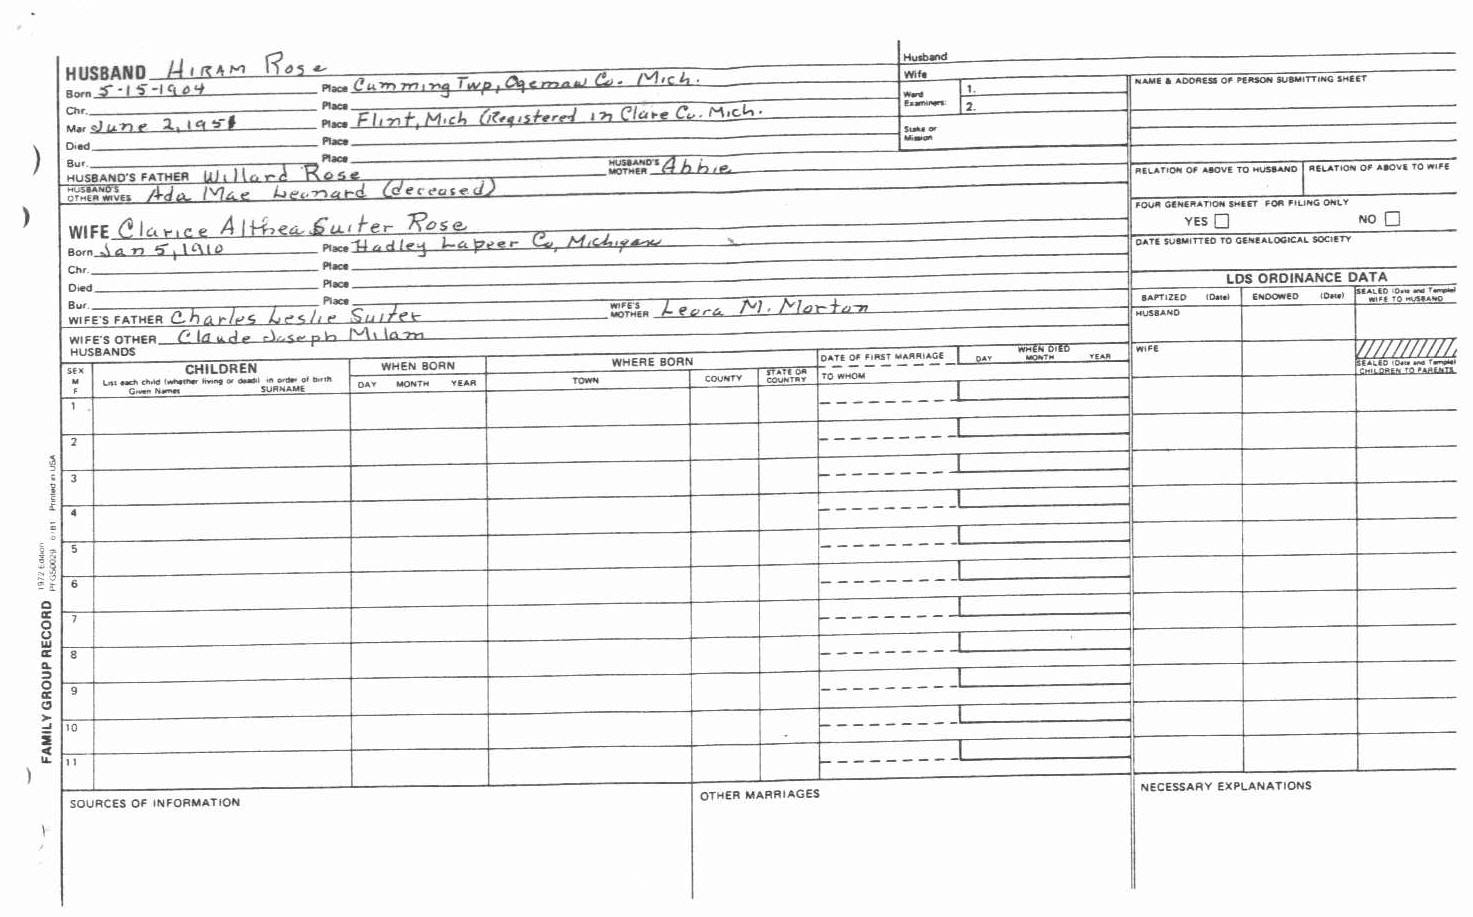 HUSBAND HIRAM Rose
Born 5-15-1904 Place Cumming Twp, Ogemaw Co. Mich.
Chr. Place
Mar June 2, 1951 Place Flint, Mich (Registered in Clare Co. Mich.
Died Place
Bur. Place
HUSBAND'S FATHER Willard Rose HUSBAND'S MOTHER Abbie
HUSBAND'S OTHER WIVES Ada Mae Leonard (deceased)
WIFE Clarice Althea Suiter Rose
Born Jan 5, 1910 Place Hadley Lapeer Co, Michigan
Chr. Place
Died Place
Bur. Place
WIFE'S FATHER Charles Leslie Suiter WIFE'S MOTHER Leora M. Morton
WIFE'S OTHER HUSBANDS Claude Joseph Milam
Husband
Wife
Ward Examiners: 1.
2.
Stake or Mission
NAME & ADDRESS OF PERSON SUBMITTING SHEET
RELATION OF ABOVE TO HUSBAND RELATION OF ABOVE TO WIFE
FOUR GENERATION SHEET FOR FILING ONLY
YES NO
DATE SUBMITTED TO GENEALOGICAL SOCIETY
LDS ORDINANCE DATA
BAPTIZED (Date) ENDOWED (Date) SEALED (Date and Temple) WIFE TO HUSBAND
HUSBAND
WIFE
SEALED (Date and Temple) CHILDREN TO PARENTS
SEX M F
CHILDREN
List each child (whether living or dead) in order of birth
Given Names SURNAME
WHEN BORN
DAY MONTH YEAR
WHERE BORN
TOWN COUNTY STATE OR COUNTRY
DATE OF FIRST MARRIAGE
TO WHOM
WHEN DIED
DAY MONTH YEAR
1
2
3
4
5
6
7
8
9
10
11
FAMILY GROUP RECORD 1972 Edition
PFGS0029 6/81 Printed in USA
SOURCES OF INFORMATION
OTHER MARRIAGES
NECESSARY EXPLANATIONS